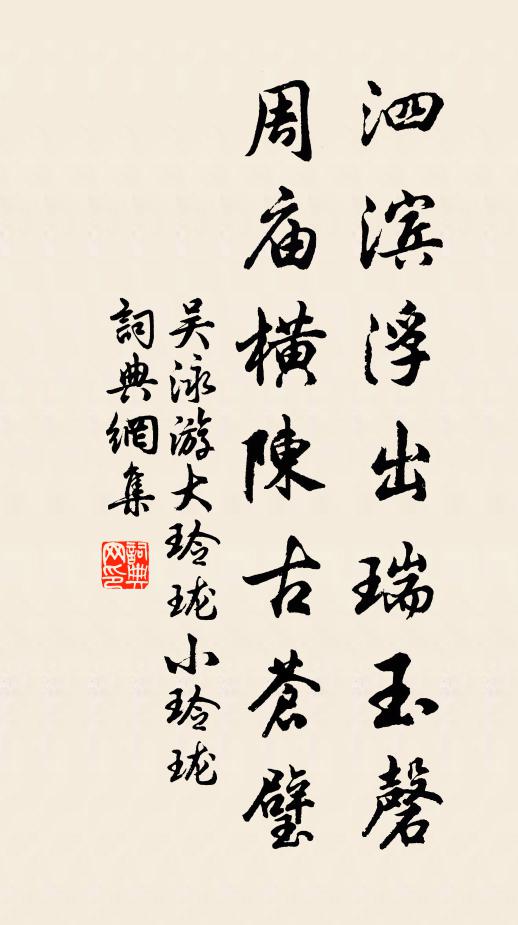 泗滨浮出瑞玉磬
周庙横陳古蒼璧
吴泳游大玲珑小玲珑
詞典網集
詞典网印